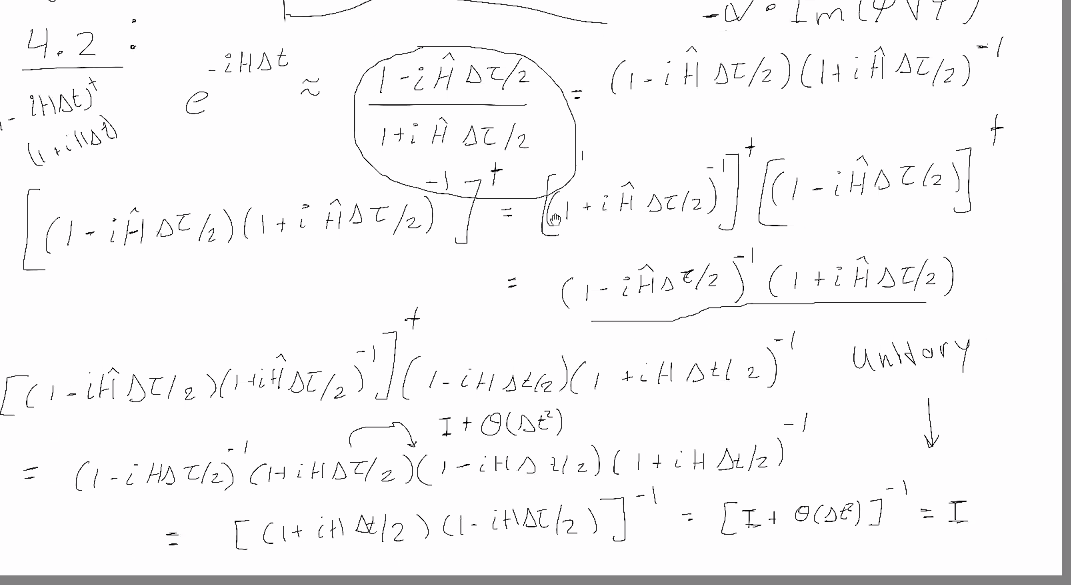 -∇ · Im(ψ∇ψ)
4.2 :
e^{-iHΔt} ≈ \frac{1-iĤΔτ/2}{1+iĤΔτ/2} = (1-iĤΔτ/2)(1+iĤΔτ/2)^{-1}
- iHΔt)^†
(1+iHΔt)
[(1-iĤΔτ/2)(1+iĤΔτ/2)^{-1}]^† = [(1+iĤΔτ/2)^{-1}]^† [(1-iĤΔτ/2)]^†
= (1-iĤΔτ/2)^{-1} (1+iĤΔτ/2)
[(1-iĤΔτ/2)(1+iĤΔτ/2)^{-1}]^† (1-iHΔt/2)(1+iHΔt/2)^{-1} Unitary
I + O(Δt²)
= (1-iHΔτ/2)^{-1} (1+iHΔτ/2)(1-iHΔt/2)(1+iHΔt/2)^{-1}
= [(1+iHΔt/2)(1-iHΔτ/2)]^{-1} = [I + O(Δt²)]^{-1} = I